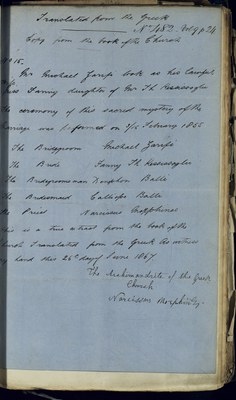 Translated from the Greek
No 482. Vol 9 p 24
Copy from the book of the Church
No 15.
Mr Michael Zarifi took as his lawful
Miss Fanny daughter of Mr Th
The ceremony of this sacred mystery of the
Marriage was performed on 3/15 February 1855
The Bridegroom Michael Zarifi
The Bride Fanny Th
The Bridegroomsman Xenophon Balli
The Bridesmaid Calliope Balli
The Priest Narcissus
This is a true extract from the book of the
Church Translated from the Greek As witness
my hand this 26th day of June 1867
The Archimandrite of the Greek
Church
Narcissos